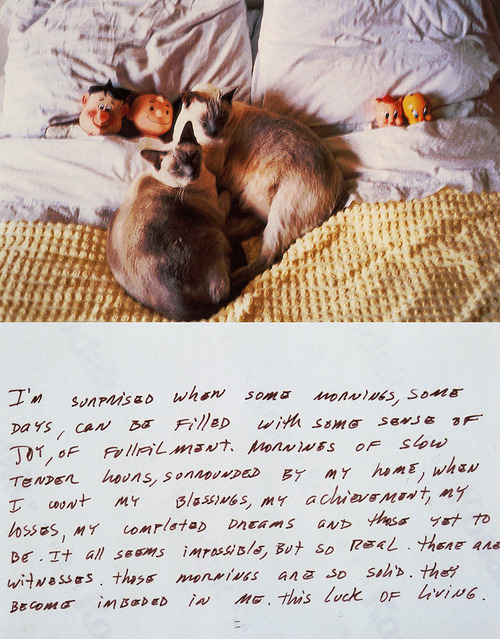 I'm surprised when some mornings, some
days, can be filled with some sense of
joy, of fullfilment. Mornings of slow
tender hours, sorrounded by my home, when
I count my blessings, my achievement, my
losses, my completed dreams and those yet to
be. It all seems impossible, but so real. There are
witnesses. Those mornings are so solid. They
become imbeded in me. This luck of living.